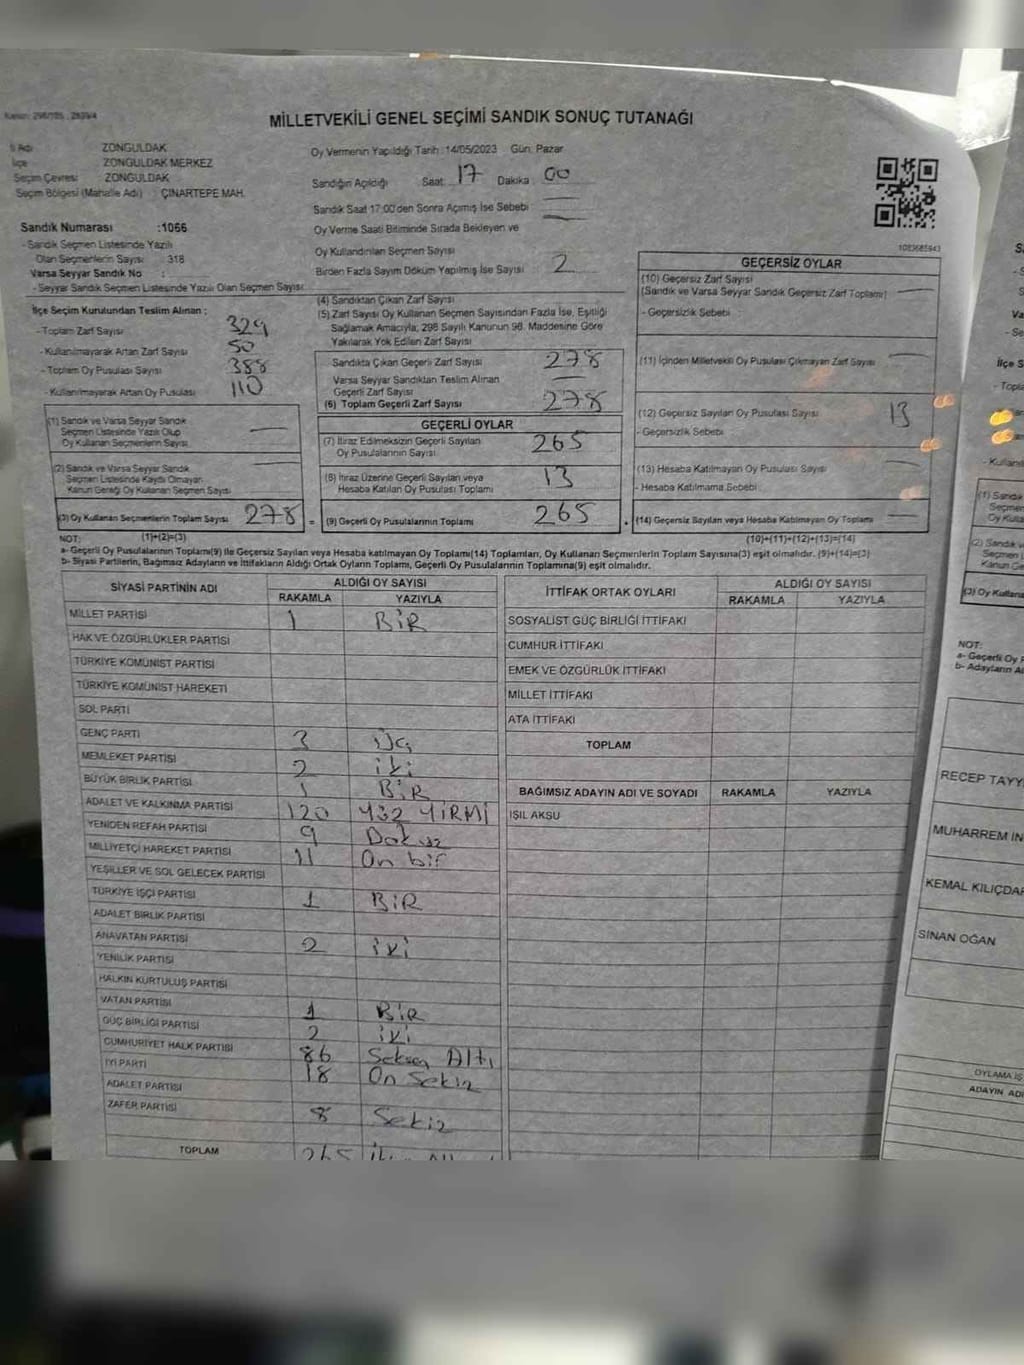 MİLLETVEKİLİ GENEL SEÇİMİ SANDIK SONUÇ TUTANAĞI
İl Adı ZONGULDAK
İlçe ZONGULDAK MERKEZ
Seçim Çevresi ZONGULDAK
Seçim Bölgesi (Mahalle Adı) : ÇINARTEPE MAH.
Sandık Numarası :1066
- Sandık Seçmen Listesinde Yazılı
Olan Seçmenlerin Sayısı : 318
Varsa Seyyar Sandık No :
- Seyyar Sandık Seçmen Listesinde Yazılı Olan Seçmen Sayısı:
Oy Vermenin Yapıldığı Tarih :14/05/2023 Gün: Pazar
Sandığın Açıldığı Saat: 17 Dakika: 00
Sandık Saat 17:00'den Sonra Açılmış İse Sebebi :
Oy Verme Saati Bitiminde Sırada Bekleyen ve
Oy Kullandırılan Seçmen Sayısı
Birden Fazla Sayım Döküm Yapılmış İse Sayısı : 2
1083685943
İlçe Seçim Kurulundan Teslim Alınan ;
- Toplam Zarf Sayısı 329
- Kullanılmayarak Artan Zarf Sayısı 50
- Toplam Oy Pusulası Sayısı 388
- Kullanılmayarak Artan Oy Pusulası 110
(1) Sandık ve Varsa Seyyar Sandık
Seçmen Listesinde Yazılı Olup
Oy Kullanan Seçmenlerin Sayısı
(2) Sandık ve Varsa Seyyar Sandık
Seçmen Listesinde Kaydı Olmayan
Kanun Gereği Oy Kullanan Seçmen Sayısı
(3) Oy Kullanan Seçmenlerin Toplam Sayısı 278 =
(1)+(2)=(3)
(4) Sandıktan Çıkan Zarf Sayısı
(5) Zarf Sayısı Oy Kullanan Seçmen Sayısından Fazla İse, Eşitliği
Sağlamak Amacıyla; 298 Sayılı Kanunun 98. Maddesine Göre
Yakılarak Yok Edilen Zarf Sayısı
Sandıkta Çıkan Geçerli Zarf Sayısı 278
Varsa Seyyar Sandıktan Teslim Alınan
Geçerli Zarf Sayısı
(6) Toplam Geçerli Zarf Sayısı 278
GEÇERLİ OYLAR
(7) İtiraz Edilmeksizin Geçerli Sayılan
Oy Pusulalarının Sayısı 265
(8) İtiraz Üzerine Geçerli Sayılan veya
Hesaba Katılan Oy Pusulası Toplamı 13
(9) Geçerli Oy Pusulalarının Toplamı 265
GEÇERSİZ OYLAR
(10) Geçersiz Zarf Sayısı
(Sandık ve Varsa Seyyar Sandık Geçersiz Zarf Toplamı)
- Geçersizlik Sebebi :
(11) İçinden Milletvekili Oy Pusulası Çıkmayan Zarf Sayısı
(12) Geçersiz Sayılan Oy Pusulası Sayısı 13
- Geçersizlik Sebebi :
(13) Hesaba Katılmayan Oy Pusulası Sayısı
- Hesaba Katılmama Sebebi :
(14) Geçersiz Sayılan veya Hesaba Katılmayan Oy Toplamı
(10)+(11)+(12)+(13)=(14)
NOT:
a- Geçerli Oy Pusulalarının Toplamı(9) ile Geçersiz Sayılan veya Hesaba katılmayan Oy Toplamı(14) Toplamları, Oy Kullanan Seçmenlerin Toplam Sayısına(3) eşit olmalıdır. (9)+(14)=(3)
b- Siyasi Partilerin, Bağımsız Adayların ve İttifakların Aldığı Ortak Oyların Toplamı, Geçerli Oy Pusulalarının Toplamına(9) eşit olmalıdır.
SİYASİ PARTİNİN ADI ALDIĞI OY SAYISI
RAKAMLA YAZIYLA
MİLLET PARTİSİ 1 BİR
HAK VE ÖZGÜRLÜKLER PARTİSİ
TÜRKİYE KOMÜNİST PARTİSİ
TÜRKİYE KOMÜNİST HAREKETİ
SOL PARTİ
GENÇ PARTİ 3 ÜÇ
MEMLEKET PARTİSİ 2 iki
BÜYÜK BİRLİK PARTİSİ 1 BİR
ADALET VE KALKINMA PARTİSİ 120 YÜZ YİRMİ
YENİDEN REFAH PARTİSİ 9 Dokuz
MİLLİYETÇİ HAREKET PARTİSİ 11 On bir
YEŞİLLER VE SOL GELECEK PARTİSİ
TÜRKİYE İŞÇİ PARTİSİ 1 BİR
ADALET BİRLİK PARTİSİ
ANAVATAN PARTİSİ 2 iki
YENİLİK PARTİSİ
HALKIN KURTULUŞ PARTİSİ
VATAN PARTİSİ 1 BİR
GÜÇ BİRLİĞİ PARTİSİ 2 iki
CUMHURİYET HALK PARTİSİ 86 Seksen Altı
İYİ PARTİ 18 On Sekiz
ADALET PARTİSİ
ZAFER PARTİSİ 8 Sekiz
TOPLAM 265
İTTİFAK ORTAK OYLARI ALDIĞI OY SAYISI
RAKAMLA YAZIYLA
SOSYALİST GÜÇ BİRLİĞİ İTTİFAKI
CUMHUR İTTİFAKI
EMEK VE ÖZGÜRLÜK İTTİFAKI
MİLLET İTTİFAKI
ATA İTTİFAKI
TOPLAM
BAĞIMSIZ ADAYIN ADI VE SOYADI RAKAMLA YAZIYLA
IŞIL AKSU
İlçe S
- Topla
- Kullanıl
(1) Sandık
Seçmen
Oy Kulla
(2) Sandık v
Seçmen L
Kanun Ge
(3) Oy Kullana
NOT:
a- Geçerli Oy P
b- Adayların Al
RECEP TAYY
MUHARREM İN
KEMAL KILIÇDAR
SİNAN OĞAN
OYLAMA İŞ
ADAYIN ADI